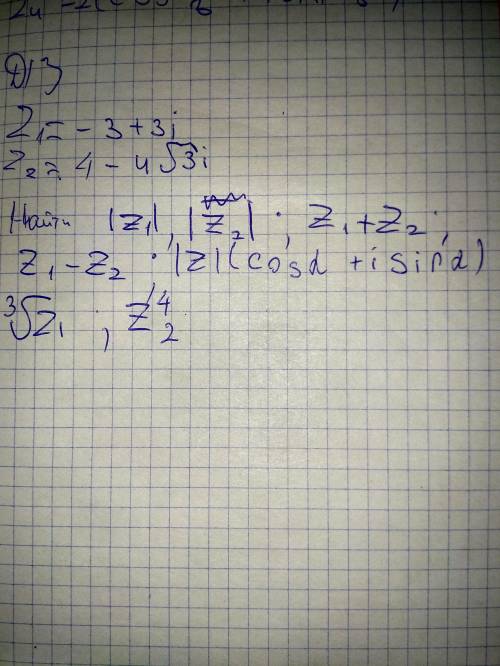 Д/З
Z₁ = -3 + 3i
Z₂ = 4 - 4√3i
Найти |Z₁|, |Z₂|; Z₁ + Z₂;
Z₁ - Z₂; |Z|(cosα + i sinα)
³√Z₁; Z₂⁴